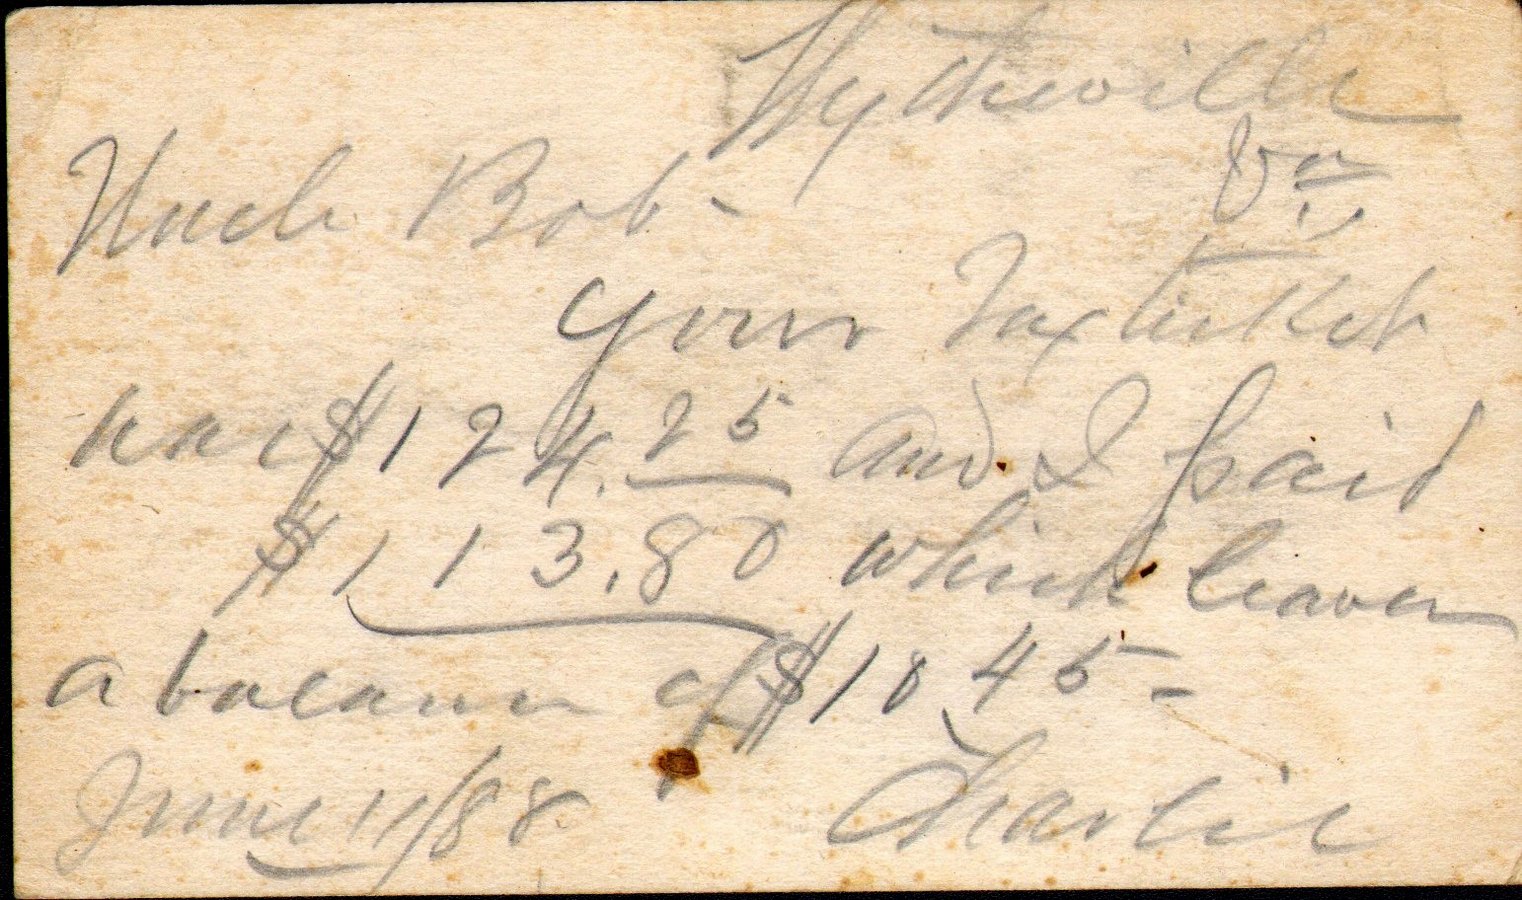 Wytheville
Va
Uncle Bob -
Your Tax ticket
was $124.25 and I paid
$113.80 which leaves
a balance of $10.45 -
June 11/88 Charlie